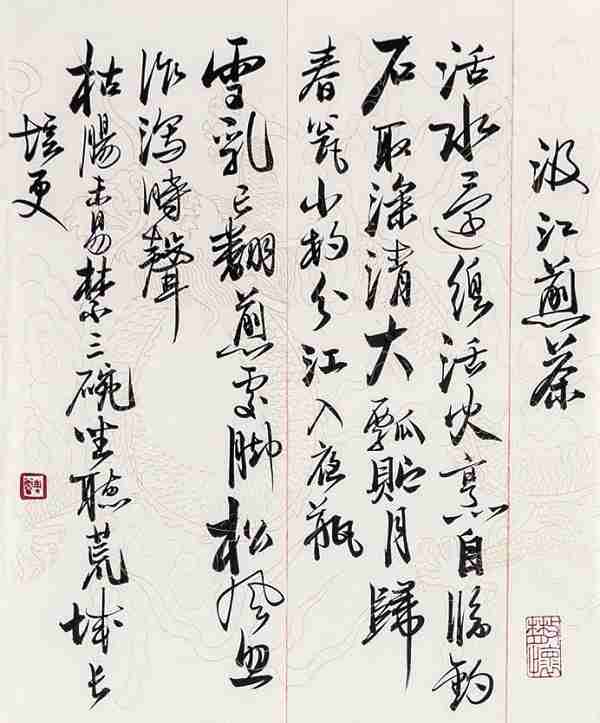 汲江煎茶
活水還須活火烹自臨釣
石取深清大瓢貯月歸
春甕小杓分江入夜瓶
雪乳已翻煎處脚松風忽
作瀉時聲
枯腸未易禁三碗坐聽荒城長
短更